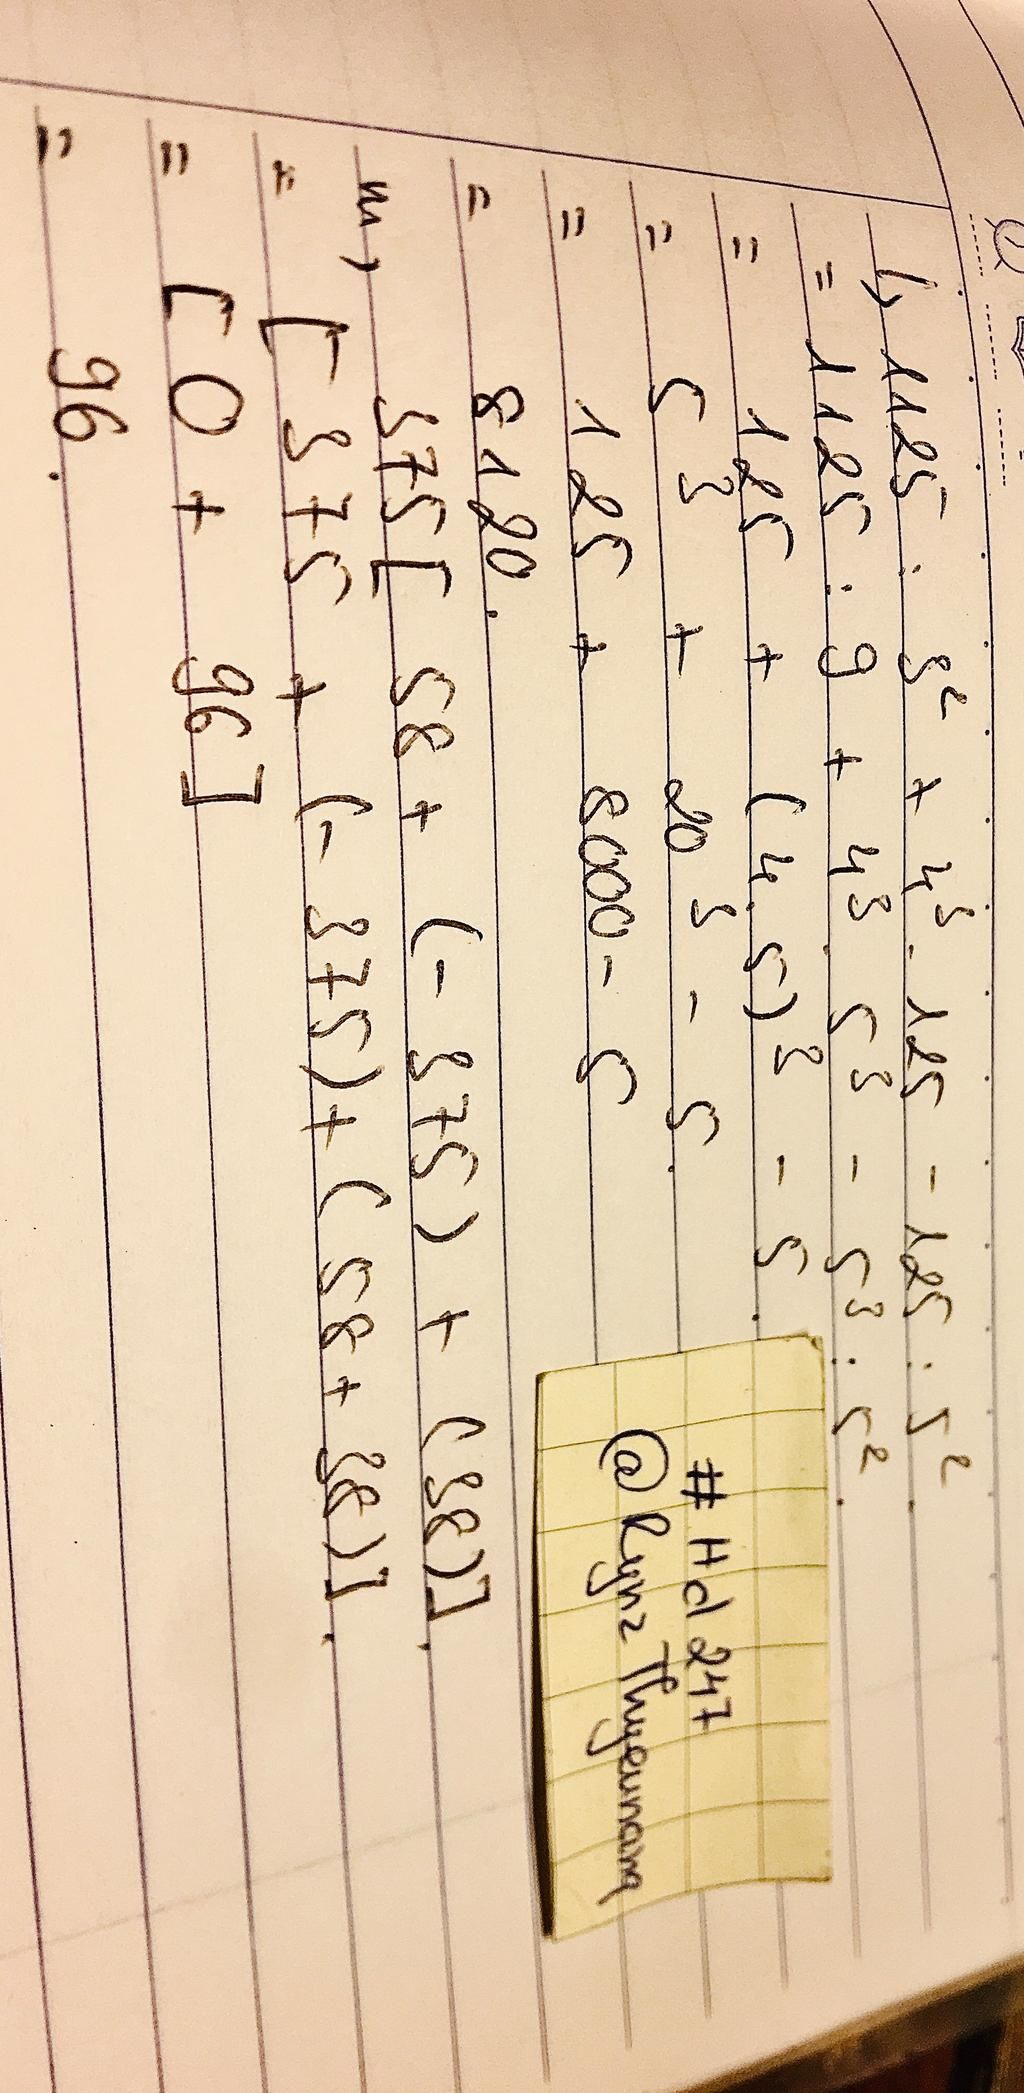 l, 1125 : 3² + 4³ . 125 - 125 : 5²
= 1125 : 9 + 4³ . 5³ - 5³ : 5² .
= 125 + (4.5)³ - 5 .
= 5³ + 20³ - 5 .
= 125 + 8000 - 5
= 8120 .
m, 375 [ 58 + (- 375) + (38)] .
= [- 375 + (- 375) + (58 + 38)] .
= [0 + 96]
= 96 .
# Hd 247
@ Rynz Thyeunang